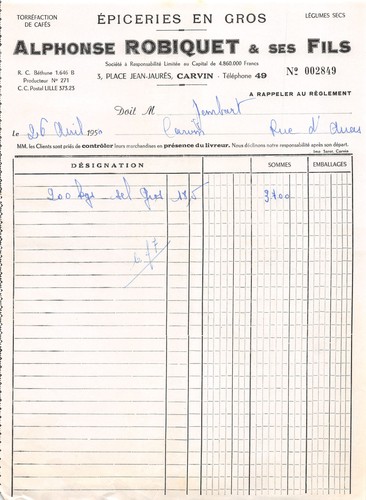 TORRÉFACTION DE CAFÉS
ÉPICERIES EN GROS
LÉGUMES SECS
ALPHONSE ROBIQUET & SES FILS
Société à Responsabilité Limitée au Capital de 4.860.000 Francs
R. C. Béthune 1.646 B
Producteur Nº 271
C. C. Postal LILLE 373.23
3, PLACE JEAN-JAURÈS, CARVIN - Téléphone 49
Nº 002849
A RAPPELER AU RÈGLEMENT
Doit M
Le 26 Avril 195
Carvin Rue d'
MM. les Clients sont priés de contrôler leurs marchandises en présence du livreur. Nous déclinons notre responsabilité après son départ.
Imp. Sansi, Carvin
DÉSIGNATION SOMMES EMBALLAGES
200 kgs sel Gros 17,5